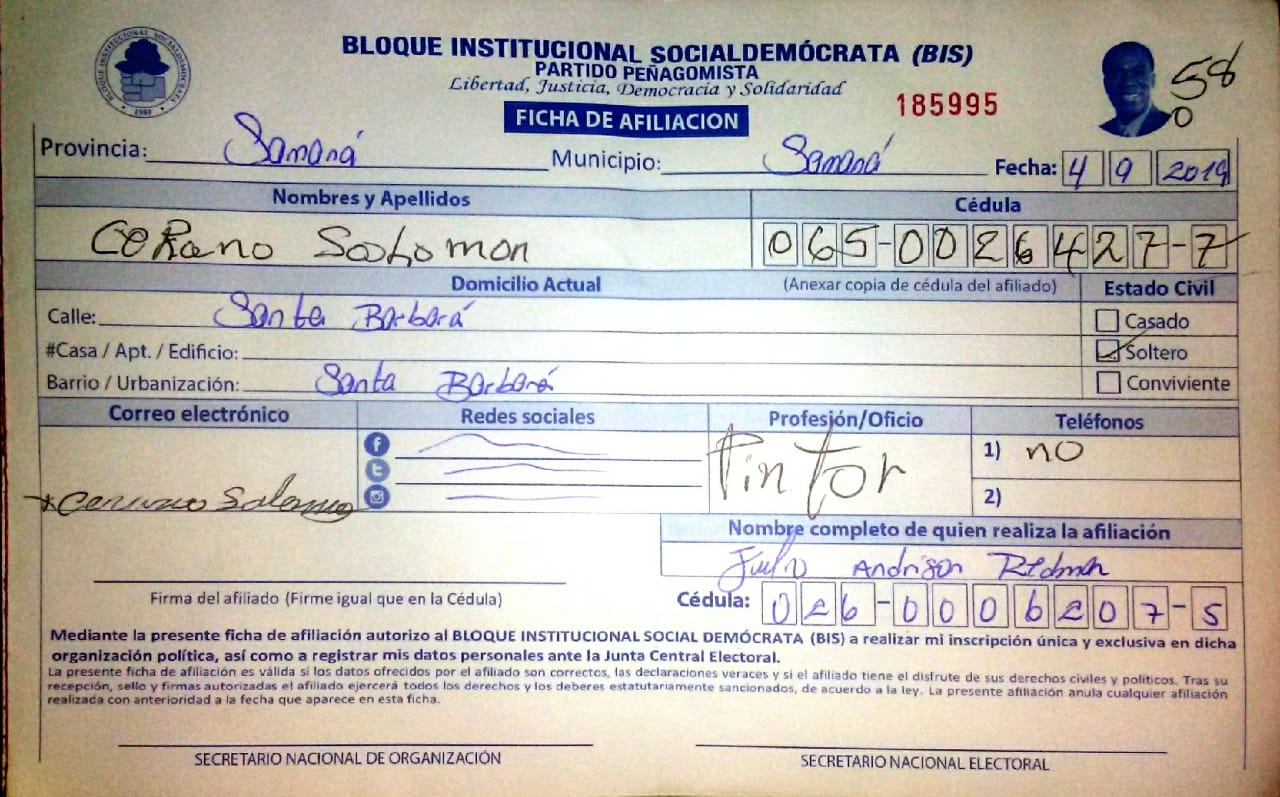 BLOQUE INSTITUCIONAL SOCIALDEMÓCRATA (BIS)
PARTIDO PEÑAGOMISTA
Libertad, Justicia, Democracia y Solidaridad
FICHA DE AFILIACION
185995
58
0
BLOQUE INSTITUCIONAL SOCIALDEMOCRATA
Provincia: Samaná Municipio: Samaná Fecha: 4 9 2019
Nombres y Apellidos Cédula
CeRano Solomon 065-0026427-7
Domicilio Actual (Anexar copia de cédula del afiliado) Estado Civil
Calle: Santa Barbará Casado
#Casa / Apt. / Edificio: Soltero
Barrio / Urbanización: Santa Barbará Conviviente
Correo electrónico Redes sociales Profesión/Oficio Teléfonos
Pintor 1) no
2)
Nombre completo de quien realiza la afiliación
Julio Andrison Redman
Firma del afiliado (Firme igual que en la Cédula) Cédula: 026-0006207-5
Mediante la presente ficha de afiliación autorizo al BLOQUE INSTITUCIONAL SOCIAL DEMÓCRATA (BIS) a realizar mi inscripción única y exclusiva en dicha
organización política, así como a registrar mis datos personales ante la Junta Central Electoral.
La presente ficha de afiliación es válida si los datos ofrecidos por el afiliado son correctos, las declaraciones veraces y si el afiliado tiene el disfrute de sus derechos civiles y políticos. Tras su
recepción, sello y firmas autorizadas el afiliado ejercerá todos los derechos y los deberes estatutariamente sancionados, de acuerdo a la ley. La presente afiliación anula cualquier afiliación
realizada con anterioridad a la fecha que aparece en esta ficha.
SECRETARIO NACIONAL DE ORGANIZACIÓN SECRETARIO NACIONAL ELECTORAL